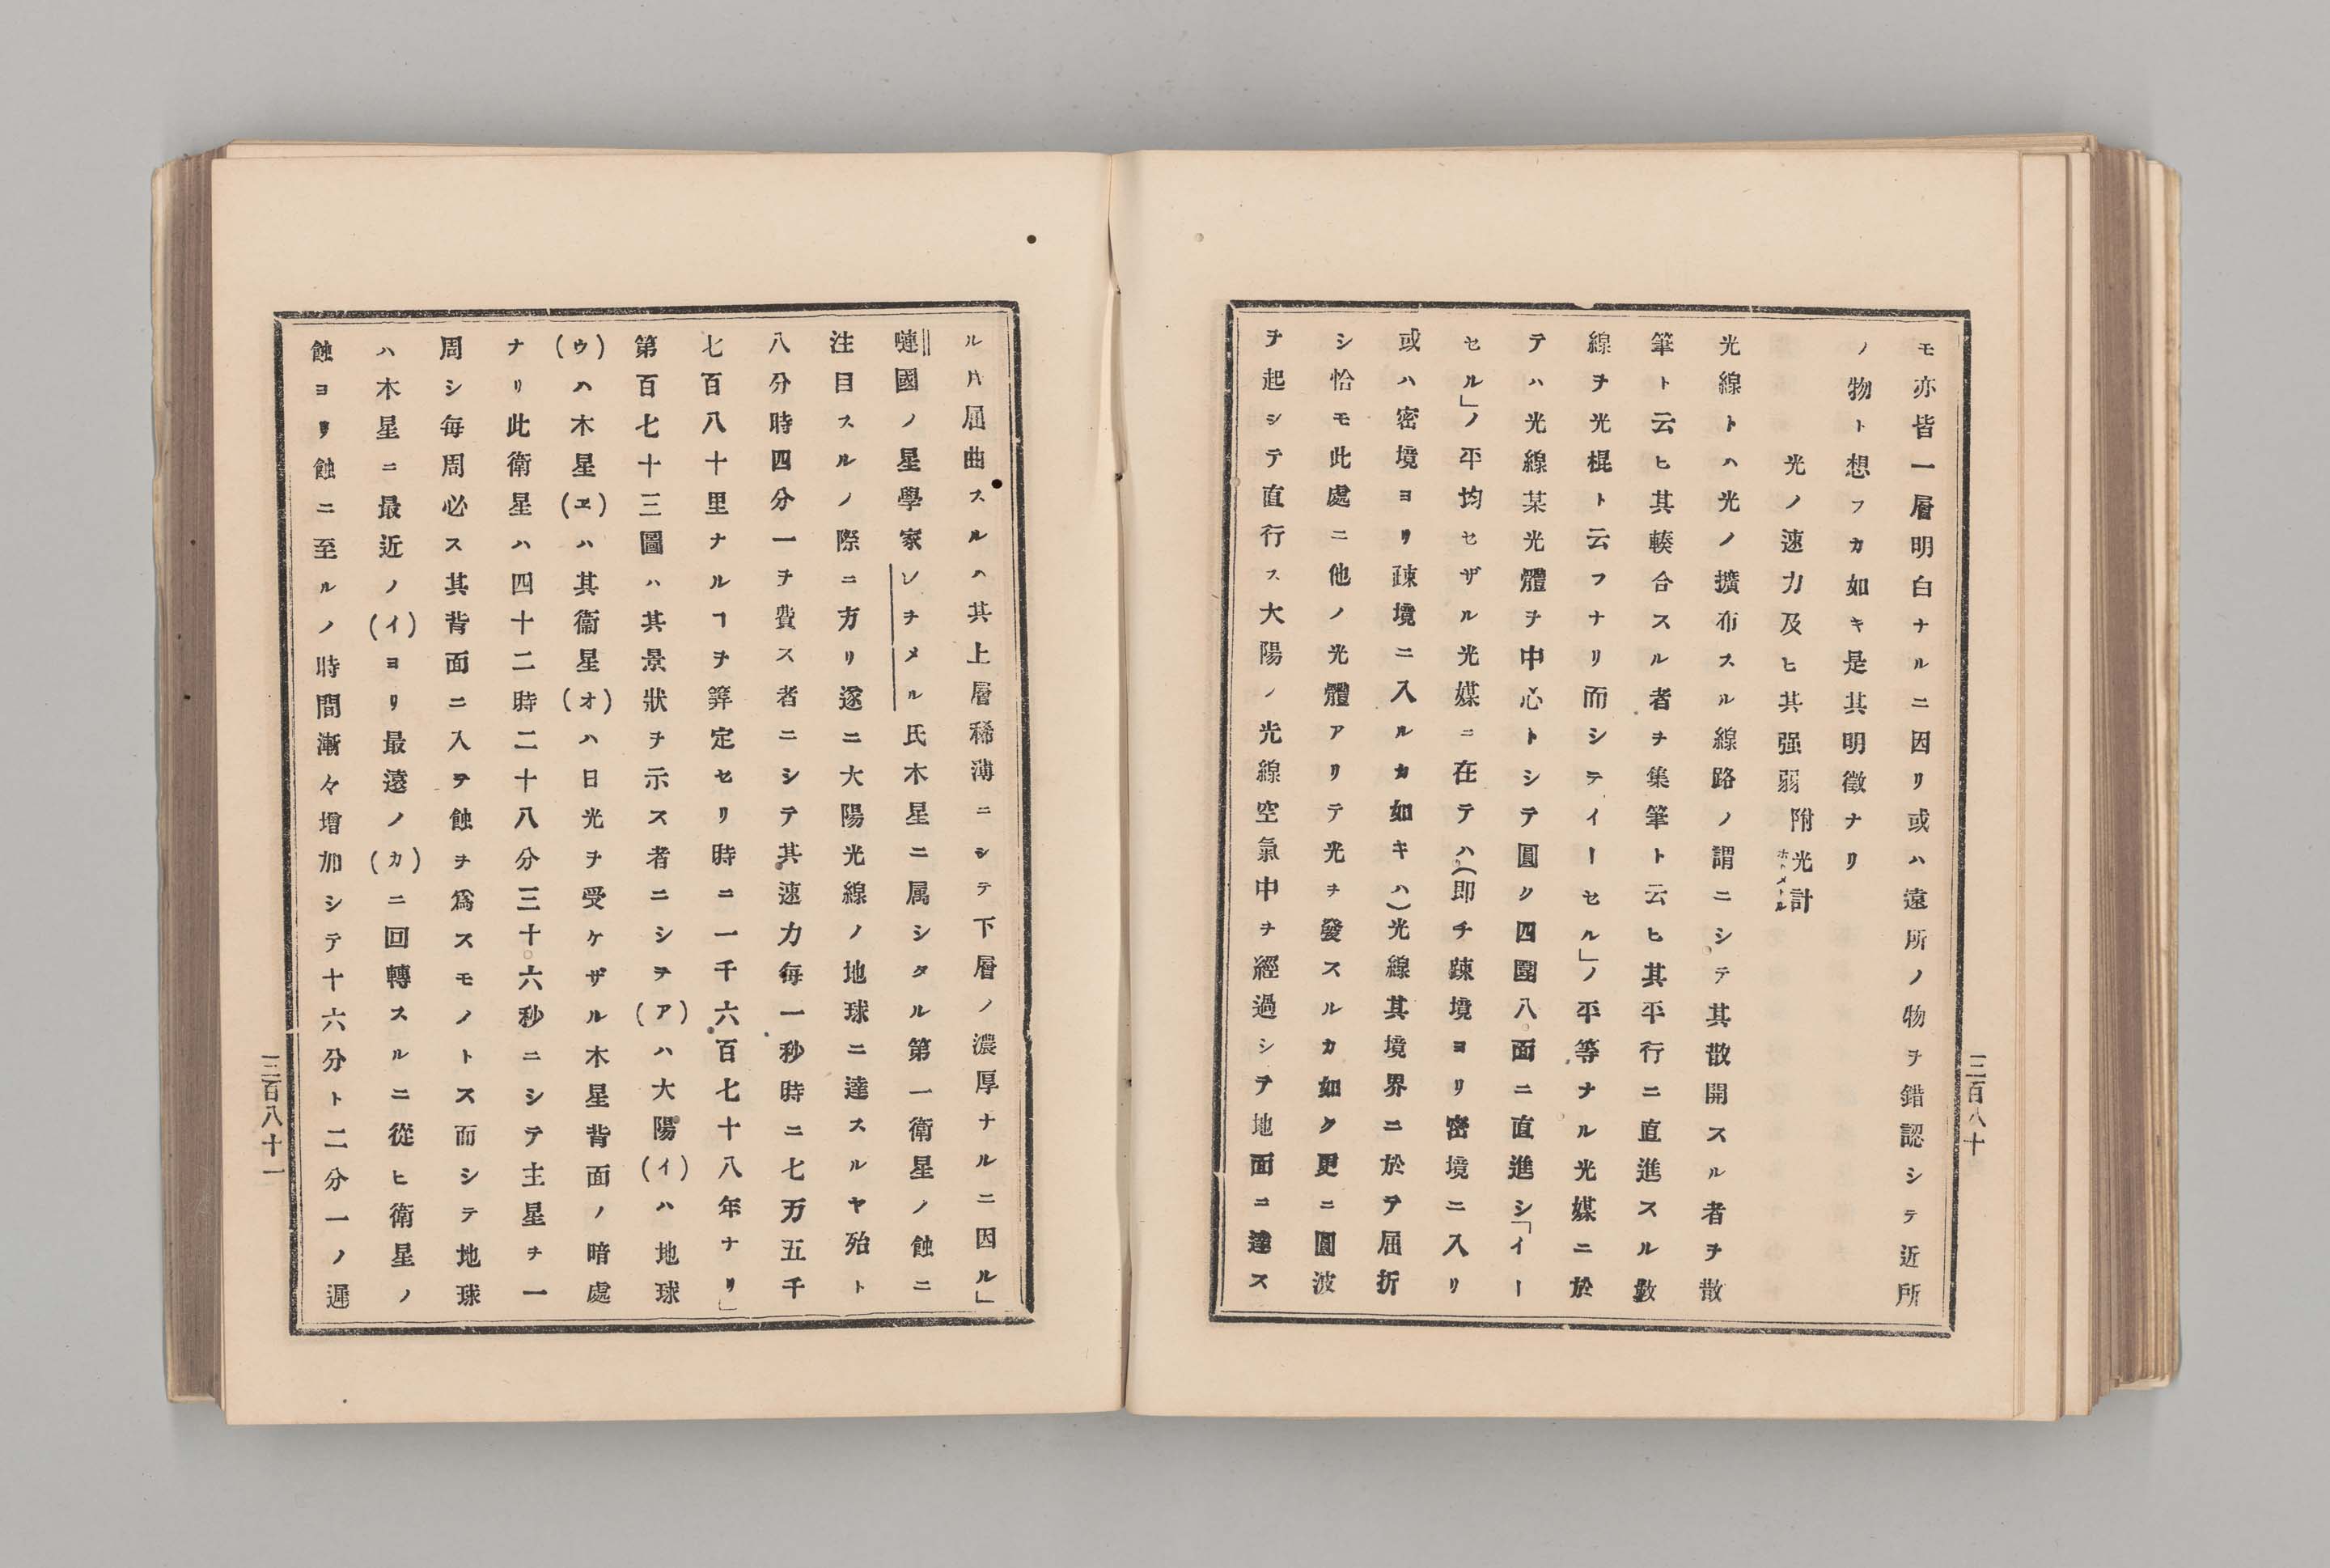 モ亦皆一層明白ナルニ因リ或ハ遠所ノ物ヲ錯認シテ近所
ノ物ト想フカ如キ是其明徵ナリ
光ノ速力及ヒ其强弱 附光計 ホトメートル
光線トハ光ノ擴布スル線路ノ謂ニシテ其散開スル者ヲ散
筆ト云ヒ其輳合スル者ヲ集筆ト云ヒ其平行ニ直進スル數
線ヲ光棍ト云フナリ而シテイーセル」ノ平等ナル光媒ニ於
テハ光線某光體ヲ中心トシテ圓ク四圍八面ニ直進シ「イー
セル」ノ平均セザル光媒ニ在テハ(即チ踈境ヨリ密境ニ入リ
或ハ密境ヨリ踈境ニ入ルカ如キハ)光線其境界ニ於テ屈折
シ恰モ此處ニ他ノ光體アリテ光ヲ發スルカ如ク更ニ圓波
ヲ起シテ直行ス大陽ノ光線空氣中ヲ經過シテ地面ニ達ス
三百八十
ル片屈曲スルハ其上層稀薄ニシテ下層ノ濃厚ナルニ因ル」
嗹國ノ星學家レヲメル氏木星ニ属シタル第一衛星ノ蝕ニ
注目スルノ際ニ方リ遂ニ大陽光線ノ地球ニ達スルヤ殆ト
八分時四分一ヲ費ス者ニシテ其速力每一秒時ニ七万五千
七百八十里ナルヿヲ筭定セリ時ニ一千六百七十八年ナリ」
第百七十三圖ハ其景狀ヲ示ス者ニシテ(ア)ハ大陽(イ)ハ地球
(ウ)ハ木星(ヱ)ハ其衞星(オ)ハ日光ヲ受ケザル木星背面ノ暗處
ナリ此衛星ハ四十二時二十八分三十六秒ニシテ主星ヲ一
周シ每周必ス其背面ニ入テ蝕ヲ爲スモノトス而シテ地球
ハ木星ニ最近ノ(イ)ヨリ最遠ノ(カ)ニ回轉スルニ從ヒ衛星ノ
蝕ヨリ蝕ニ至ルノ時間漸々增加シテ十六分ト二分一ノ遲
三百八十一